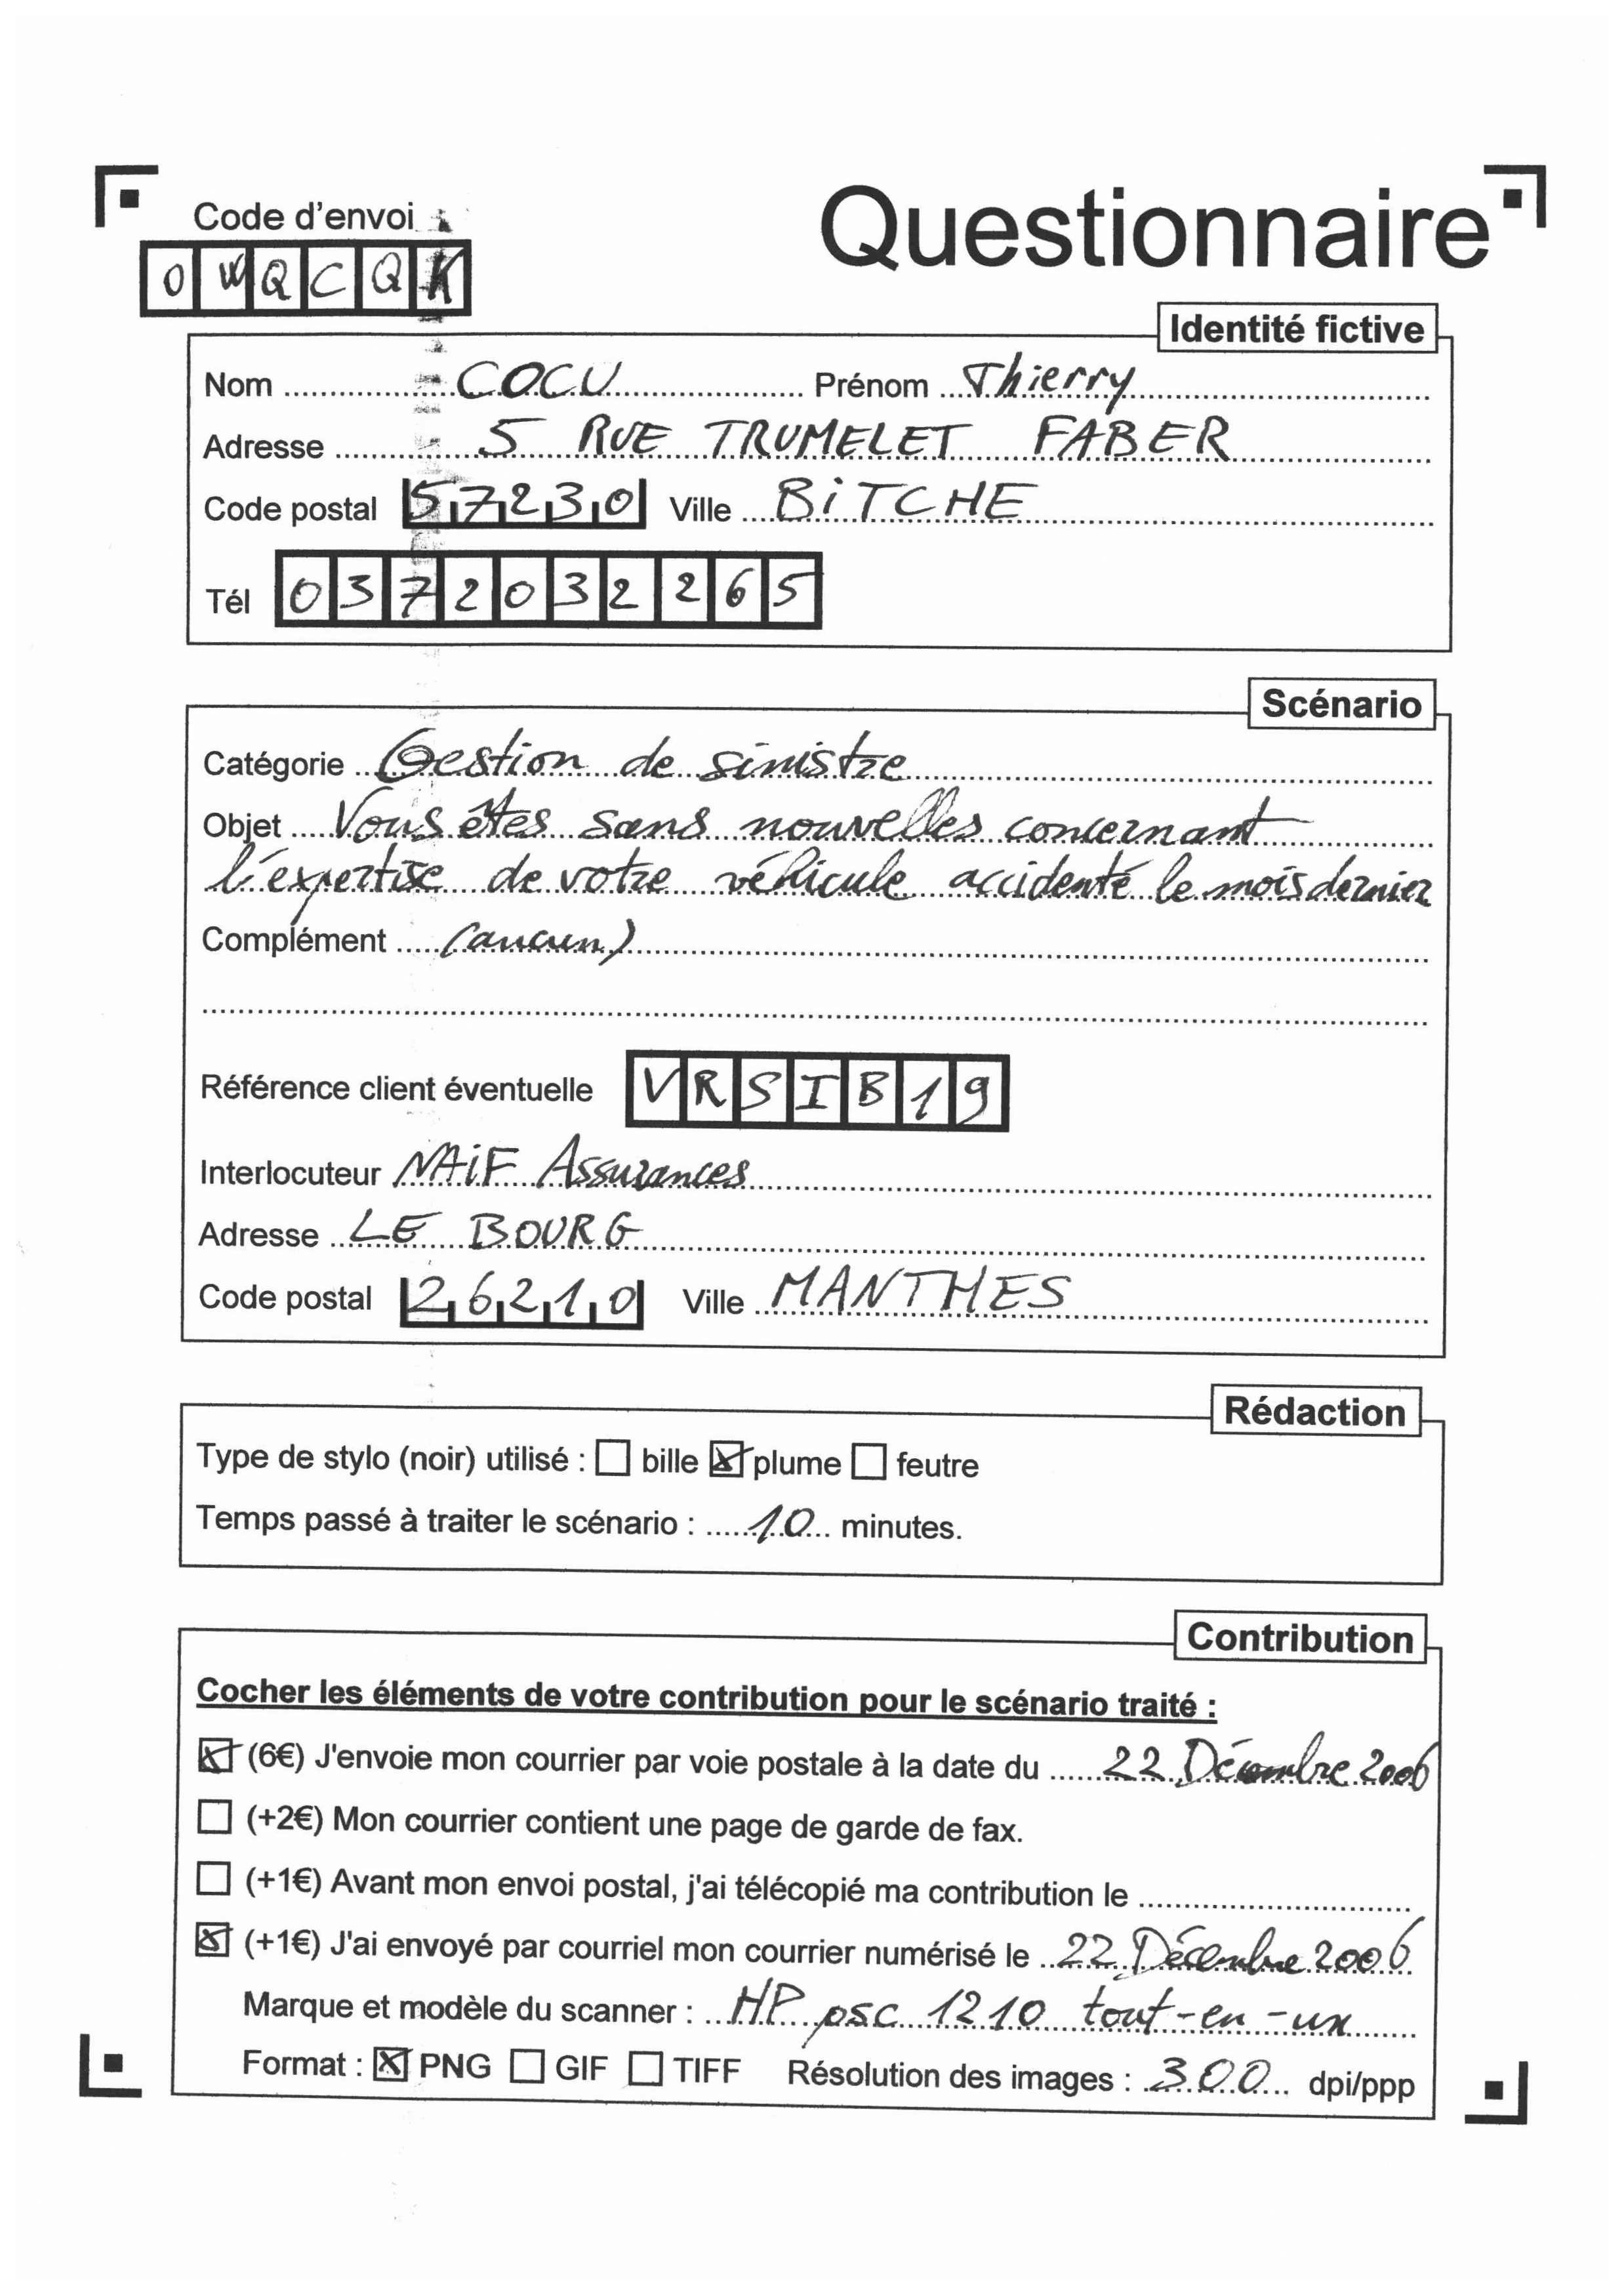 Code d'envoi
Questionnaire
O W Q C Q K
Identité fictive
Nom COCU Prénom Thierry
Adresse 5 RUE TRUMELET FABER
Code postal 57230 Ville BiTCHE
Tél 0372032265
Scénario
Catégorie Gestion de sinistre
Objet Vous êtes sans nouvelles concernant
l'expertise de votre véhicule accidenté le mois dernier
Complément (aucun)
Référence client éventuelle VRSIB19
Interlocuteur MAiF Assurances
Adresse LE BOURG
Code postal 26210 Ville MANTHES
Rédaction
Type de stylo (noir) utilisé : ☐ bille ☒ plume ☐ feutre
Temps passé à traiter le scénario : 10 minutes.
Contribution
Cocher les éléments de votre contribution pour le scénario traité :
☒ (6€) J'envoie mon courrier par voie postale à la date du 22 Décembre 2006
☐ (+2€) Mon courrier contient une page de garde de fax.
☐ (+1€) Avant mon envoi postal, j'ai télécopié ma contribution le
☒ (+1€) J'ai envoyé par courriel mon courrier numérisé le 22 Décembre 2006
Marque et modèle du scanner : HP psc 1210 tout-en-un
Format : ☒ PNG ☐ GIF ☐ TIFF Résolution des images : 300 dpi/ppp